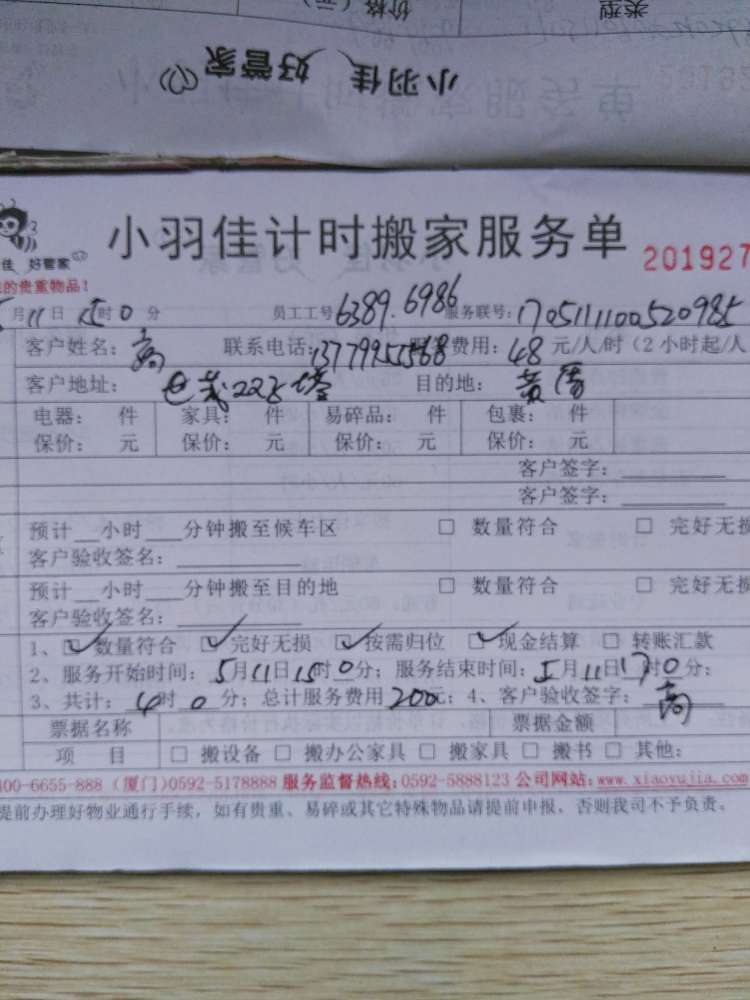 类型
价格（元）
小羽佳 好管家
小羽佳计时搬家服务单
201927
佳 好管家
的贵重物品！
5月11日15时0分 员工工号6389.6986 服务联号：170511100520985
客户姓名：高 联系电话：13779955568 服务费用：48元/人/时（2小时起/人
客户地址： 目的地：黄
电器： 件 家具： 件 易碎品： 件 包裹： 件
保价： 元 保价： 元 保价： 元 保价： 元
客户签字：
客户签字：
预计__小时___分钟搬至候车区 □ 数量符合 □ 完好无损
客户验收签名：
预计__小时___分钟搬至目的地 □ 数量符合 □ 完好无损
客户验收签名：
1、☑ 数量符合 ☑ 完好无损 ☑ 按需归位 ☑ 现金结算 □ 转账汇款
2、服务开始时间：5月11日15时0分；服务结束时间：5月11日17时0分；
3、共计：4时0分；总计服务费用200元；4、客户验收签字：高
票据名称 票据金额
项 目 □ 搬设备 □ 搬办公家具 □ 搬家具 □ 搬书 □ 其他：
400-6655-888（厦门）0592-5178888 服务监督热线：0592-5888123 公司网站：www.xiaoyujia.com
提前办理好物业通行手续，如有贵重、易碎或其它特殊物品请提前申报，否则我司不予负责。